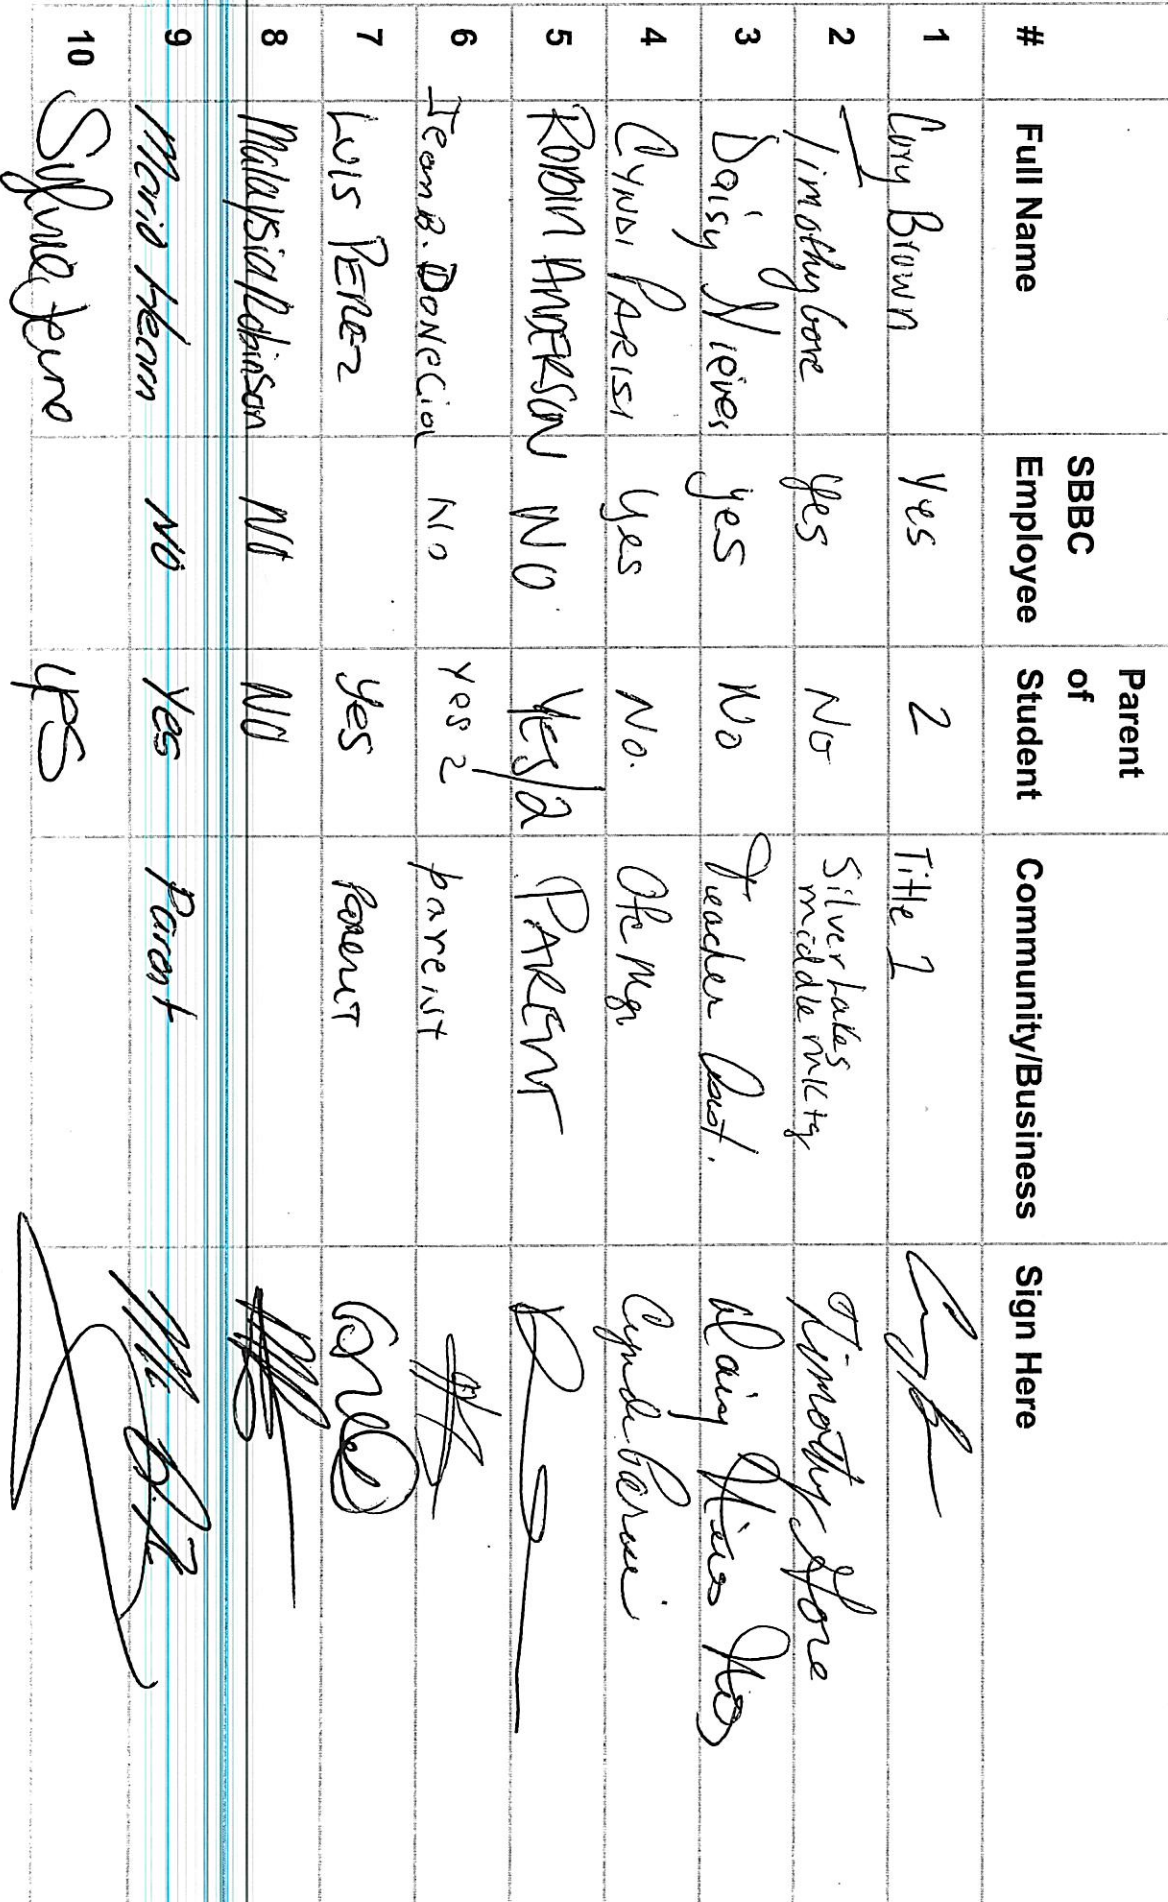 Parent
SBBC of
# Full Name Employee Student Community/Business Sign Here
1 Cory Brown Yes 2 Title 1
2 Timothy Gore yes No Silver Lakes
middle mktg Timothy Gore
3 Daisy Nieves yes No Teacher Asst. Daisy Nieves
4 CYNDI PARISI yes No. Ofc Mgr Cyndi Parisi
5 ROBIN ANDERSON NO. Yes/2 PARENT
6 Jean B. DONECIAL No Yes 2 parent
7 LUIS PEREZ yes Parent
8 Malaysia Robinson NO NO
9 Mario Hearn NO Yes Parent
10 yes